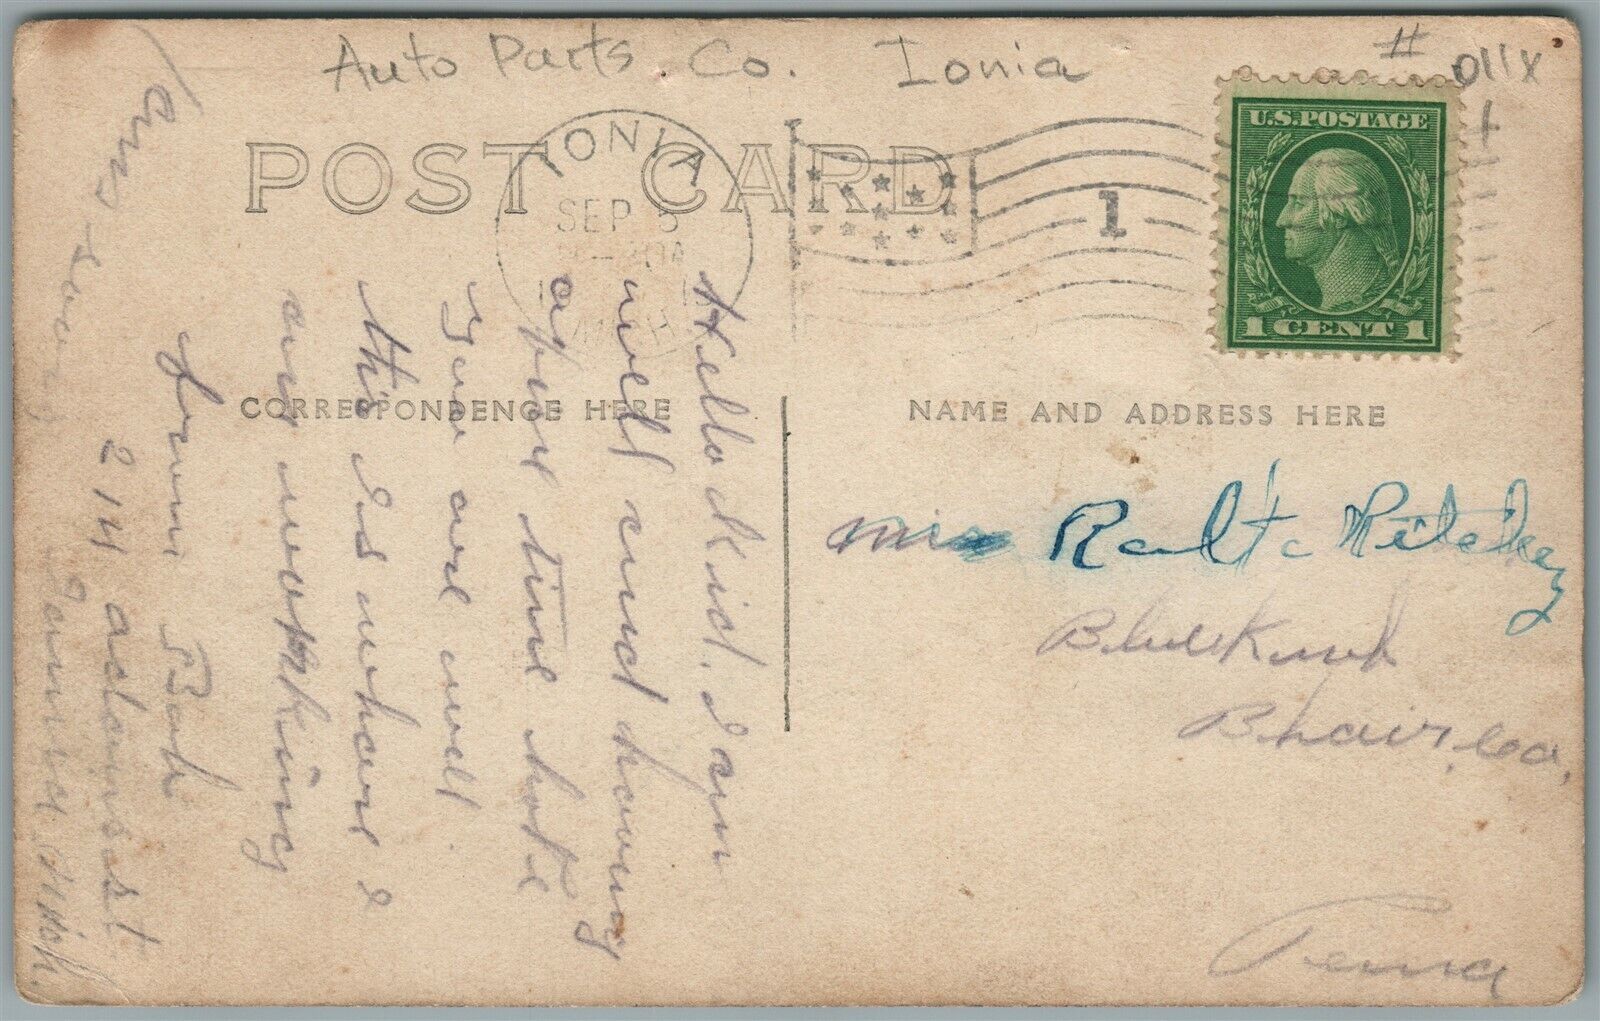 Auto Parts. Co. Ionia # 011X
POST CARD
IONIA
SEP 5
MICH
1
U.S. POSTAGE
1 CENT 1
CORRESPONDENCE HERE
NAME AND ADDRESS HERE
Hello Kid, I am
well and having
a fine time hope
you are well.
this is where I
am working
from Bob
214 adams st
Ionia. Mich.
Ans-soon
Miss
Blair, Co,
Penna